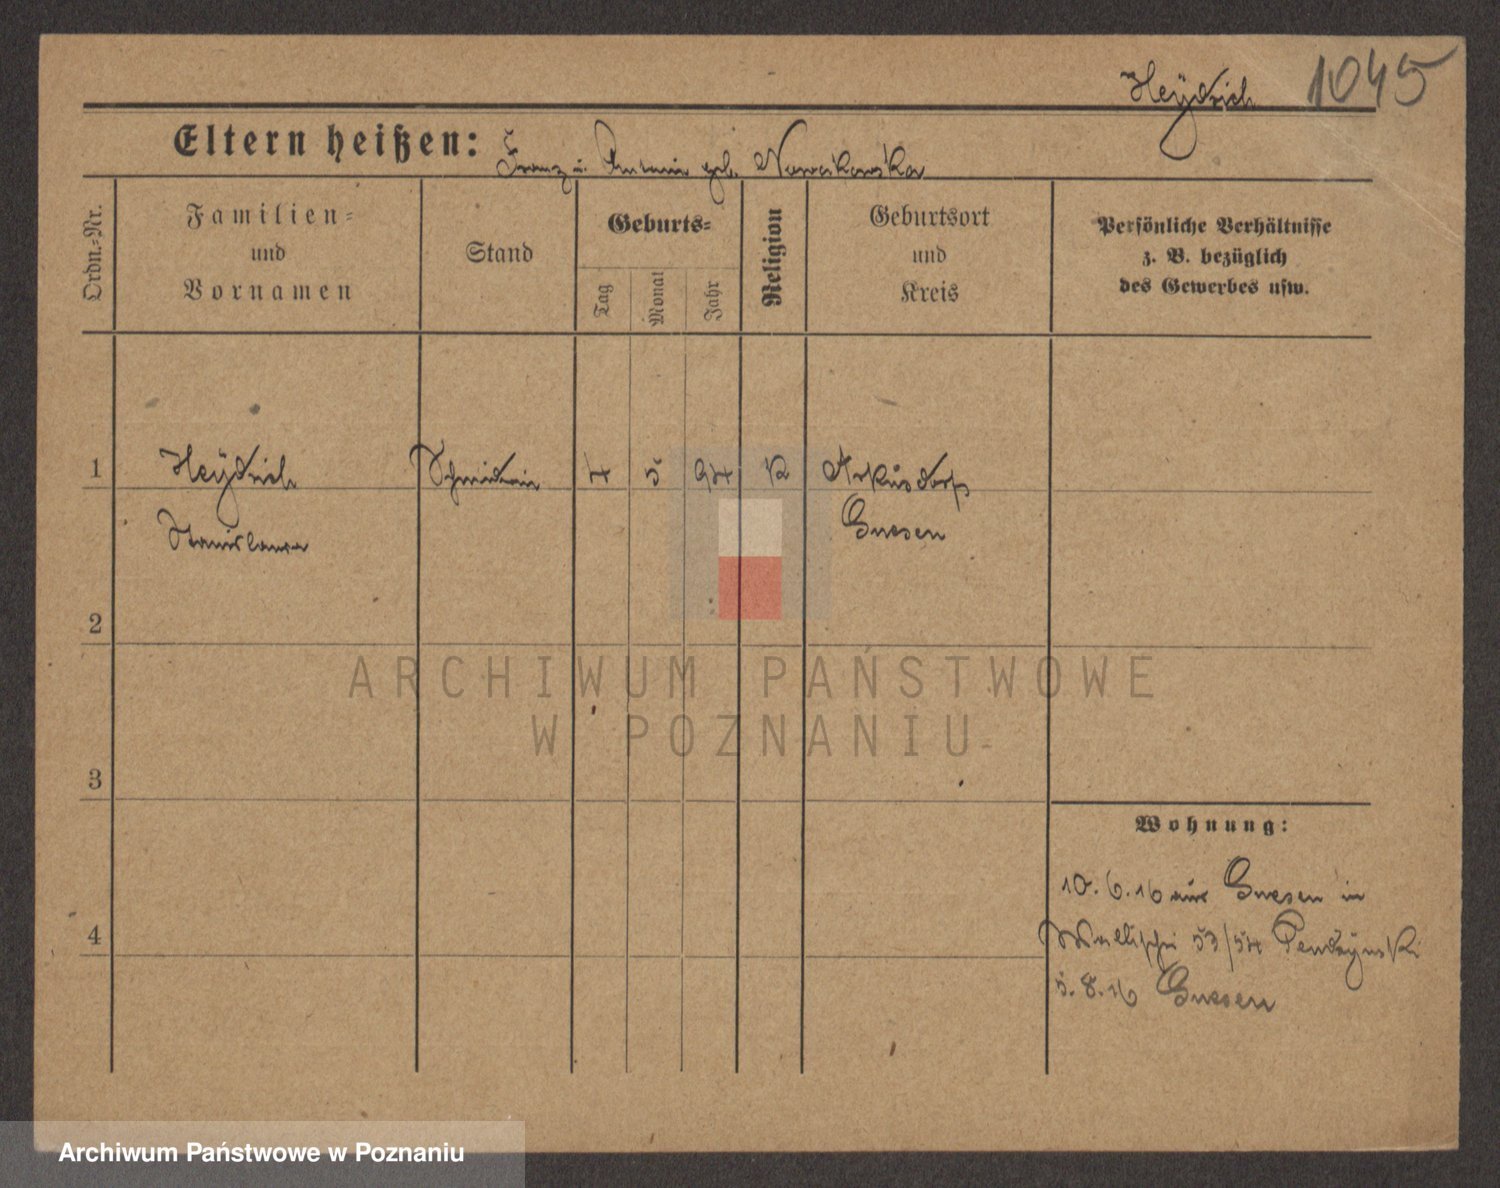 Heÿdrich 1045
Eltern heißen: Franz u. geb. Nowakowska
Ordn.=Nr.
Familien=
und
Vornamen
Stand
Geburts=
Tag
Monat
Jahr
Religion
Geburtsort
und
Kreis
Persönliche Verhältnisse
z. B. bezüglich
des Gewerbes usw.
1 Heÿdrich 4 5 94 K
Stanislawa Gnesen
2
ARCHIWUM PAŃSTWOWE
W POZNANIU
3
Wohnung:
10.6.16 aus Gnesen in
4
Wallischei 53/54
5.8.16 Gnesen
Archiwum Państwowe w Poznaniu